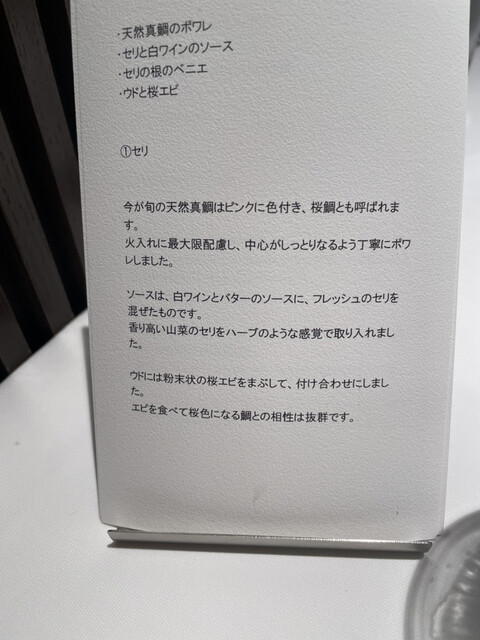 ・天然真鯛のポワレ
・セリと白ワインのソース
・セリの根のベニエ
・ウドと桜エビ
①セリ
今が旬の天然真鯛はピンクに色付き、桜鯛とも呼ばれま
す。
火入れに最大限配慮し、中心がしっとりなるよう丁寧にポワ
レしました。
ソースは、白ワインとバターのソースに、フレッシュのセリを
混ぜたものです。
香り高い山菜のセリをハーブのような感覚で取り入れまし
た。
ウドには粉末状の桜エビをまぶして、付け合わせにしまし
た。
エビを食べて桜色になる鯛との相性は抜群です。